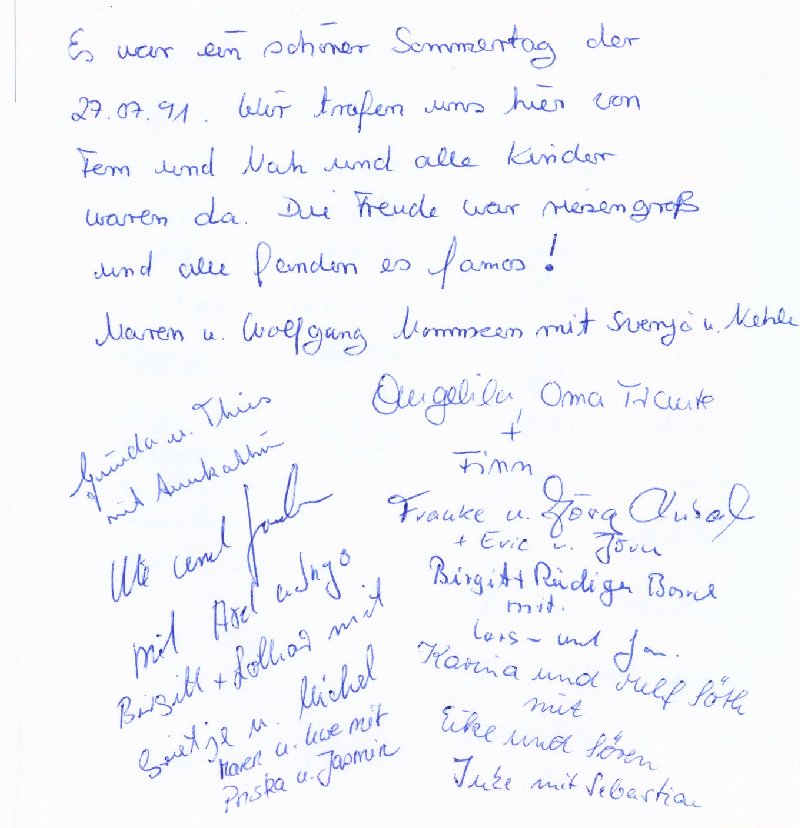 Es war ein schöner Sommertag der
27.07.91. Wir trafen uns hier von
Fern und Nah und alle Kinder
waren da. Die Freude war riesengroß
und alle fanden es famos!
Maren u. Wolfgang Mommsen mit Svenja u.
Angelika, Oma Traute
+
Finn
Frauke u. Jörg
+ Eric u. Jörn
Birgit + Rüdiger
mit
Lars - und Jan.
Karina und Ralf Söth
mit
Eike und Sören
Inke mit Sebastian
Gunda u. Thies
mit Annkathrin
Ute und
mit Axel u. Ingo
Birgitt + Lothar mit
Grietje u. Michel
Maren u. Uwe mit
Priska u. Jasmin